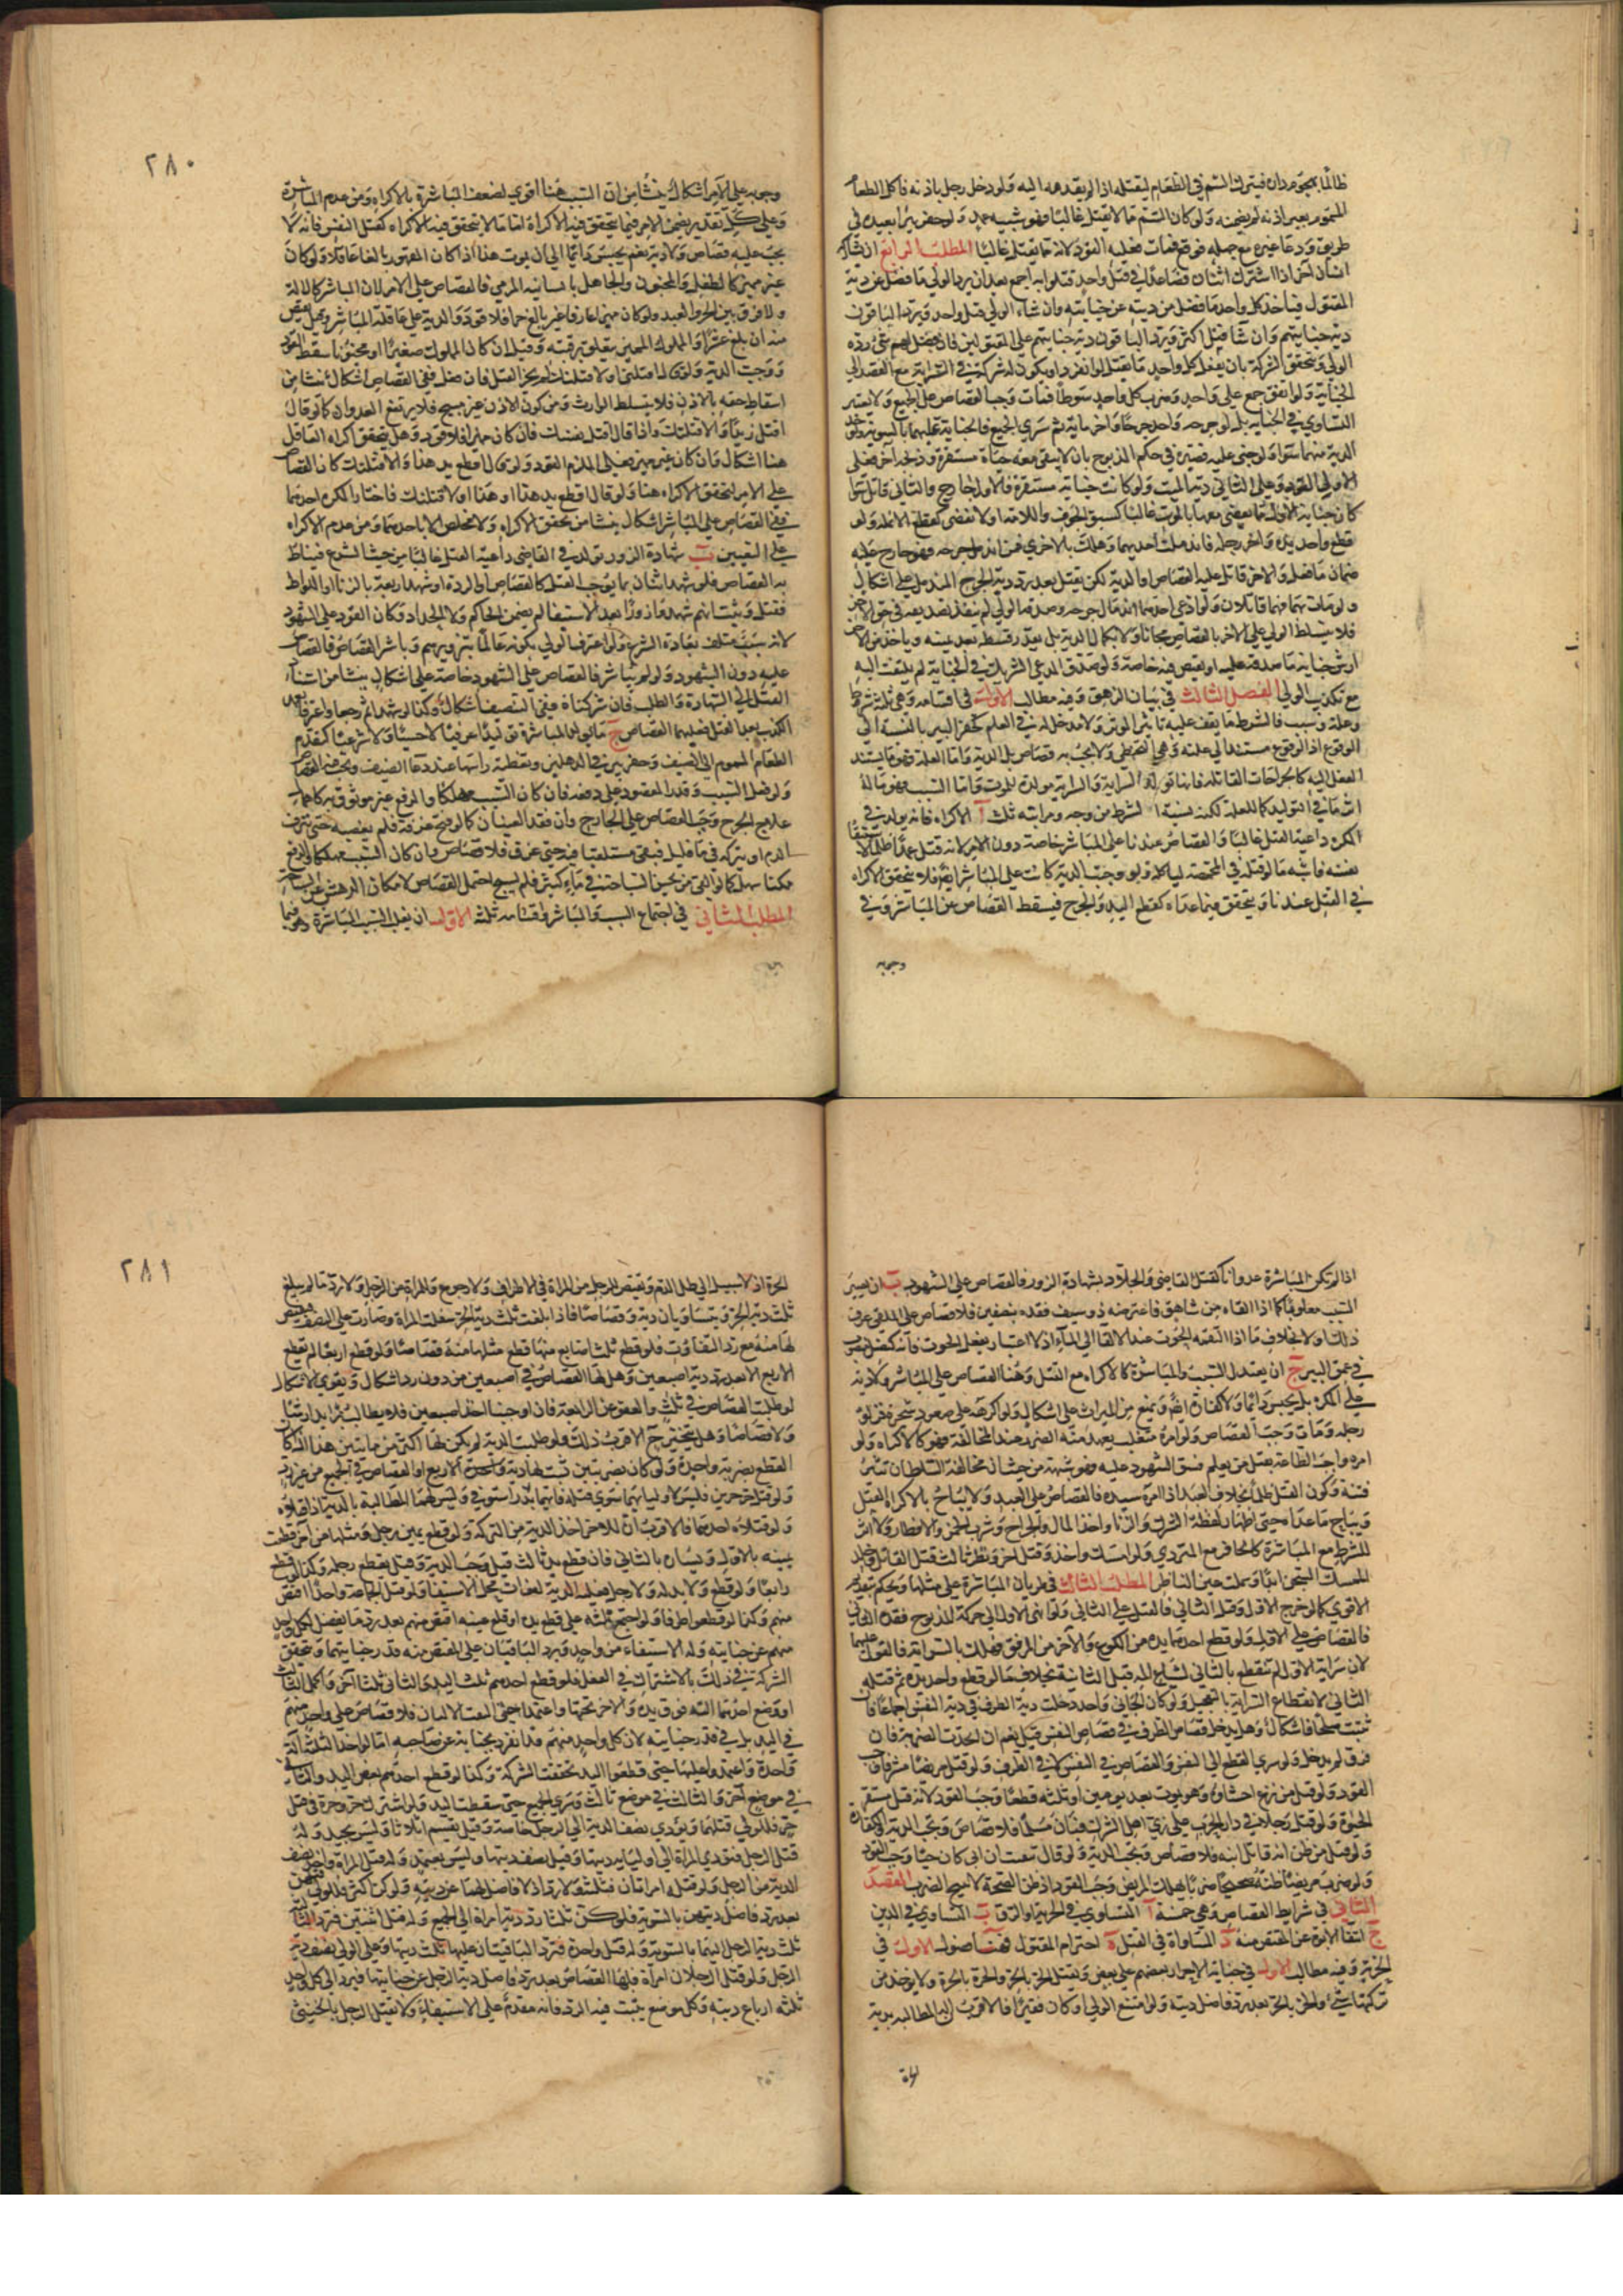 ظالما بهجوم دار فيترك السم في الطعام ليقتله اذا لم يقدمه اليه ولو دخل رجل باذنه فاكل الطعام
المسموم بغير اذنه لم يضمنه ولو كان السم مما لا يقتل غالبا فهو شبيه عمد ولو حفر بئرا بعيدة في
طريق ودعا غيره مع جهله فوقع فمات فعليه القود لانه مما يقتل غالبا المطلب الرابع ان يشاركه
انسان آخر اذا اشترك اثنان فصاعدا في قتل واحد قتلوا به اجمع بعد ان يرد الولي ما فضل عن دية
المقتول فياخذ كل واحد ما فضل من ديته عن جنايته وان شاء الولي قتل واحد ويرد الباقون
دية جنايتهم وان شاء قتل اكثر ويرد الباقون دية جنايتهم على المقتولين فان فضل لهم شئ رده
الولي ويتحقق الشركة بان يفعل كل واحد ما يقتل لو انفرد او يكون له شركة في السراية مع القصد الى
الجناية ولو اتفق جمع على واحد وضرب كل واحد سوطا فمات وجب القصاص على الجميع ولا يعتبر
التساوي في الجناية بل لو جرحه واحد جرحا وآخر مائة ثم سرى الجميع فالجناية عليهما بالسوية ويؤخذ
الدية منهما سواء ولو جنى عليه فصيره في حكم المذبوح بان لا يبقى معه حياة مستقرة وذبحه آخر فعلى
الاول القود وعلى الثاني دية الميت ولو كانت جنايته مستقرة فالاول جارح والثاني قاتل سواء
كان جناية الاول مما يقضي معها بالموت غالبا كسبق الجوف والآمة او لا تفضي كقطع الانملة ولو
قطع واحد يده وآخر رجله فاندملت احديهما وهلك بالاخرى فمن اندمل جرحه فهو جارح عليه
ضمان ما فعل والاخر قاتل عليه القصاص او الدية لكن يقتل بعد رد دية الجرح المندمل على اشكال
ولو مات بهما فهما قاتلان ولو ادعى احدهما اندمال جرحه وصدقه الولي لم ينفذ تصديقه في حق الاخر
فلا يتسلط الولي على الاخر بالقصاص مجانا ولا بكمال الدية بل بعد رد قسطه بعد يمينه وياخذ من الاخر
ارش جناية ما صدقه عليه او يقتص فيه خاصة ولو صدق المدعي الشريك في الجناية لم يلتفت اليه
مع تكذيب الولي الفصل الثالث في بيان الزهوق وفيه مطالب الاول في اقسامه وهي ثلثة شرط
وعلة وسبب فالشرط ما يقف عليه تاثير الموثر ولا مدخل له في العلم كحفر البير بالنسبة الى
الوقوع اذ الوقوع مستند الى علته وهي التخطي ولا يجب به قصاص بل الدية واما العلة فهو ما يستند
الفعل اليه كالجراحات القاتلة فانها تولد السراية والسراية مولدة للموت واما السبب فهو ما له
اثر ما في التوليد كما للعلة لكنه يشبه الشرط من وجه ومراتبه ثلث آ الاكراه فانه يولد في
المكره داعية القتل غالبا والقصاص عندنا على المباشر خاصة دون الامر لانه قتل عمدا ظلما لاستبقاء
نفسه فاشبه ما لو قتله في المخمصة لياكله ولو وجبت الدية كانت على المباشر ايضا فلا يتحقق الاكراه
في القتل عندنا ويتحقق فيما عداه كقطع اليد والجرح فيسقط القصاص عن المباشر وفي
وجوبه
٢٨٠
وجوبه على الآمر اشكال ينشا من ان السبب هنا اقوى لضعف المباشرة بالاكراه ومن عدم المباشرة
وعلى كل تقدير يضمن الآمر فيما يتحقق فيه الاكراه اما ما لا يتحقق فيه الاكراه كقتل النفس فانه لا
يجب عليه قصاص ولا دية نعم يحبس دائما الى ان يموت هذا اذا كان المقهور بالغا عاقلا ولو كان
غير مميز كالطفل والمجنون والجاهل بانسانية المرمي فالقصاص على الامر لان المباشر كالالة
ولا فرق بين الحر والعبد ولو كان مميزا عارفا غير بالغ حرا فلا قود والدية على عاقلة المباشر وقيل يقتص
منه ان بلغ عشرا والمملوك المميز يتعلق برقبته وقيل ان كان المملوك صغيرا او مجنونا سقط القود
ووجبت الدية ولو قال اقتلني او لاقتلنك لم يجز القتل فان فعل ففي القصاص اشكال ينشا من
اسقاط حقه بالاذن فلا يتسلط الوارث ومن كون الاذن غير مبيح فلا يرتفع العدوان كما لو قال
اقتل زيدا والا قتلتك واذا قال اقتل نفسك فان كان مميزا فلا قود وهل يتحقق اكراه العاقل
هنا اشكال وان كان غير مميز فعلى الملزم القود ولو قال اقطع يد هذا والا قتلتك كان القصاص
على الامر لتحقق الاكراه هنا ولو قال اقطع يد هذا او هذا او لاقتلنك فاختار المكره احدهما
ففي القصاص على المباشر اشكال ينشا من تحقق الاكراه ولا تخلص الا باحدهما ومن عدم الاكراه
على التعيين ب شهادة الزور تولد في القاضي داعية القتل غالبا من حيث الشرع فيناط
به القصاص فلو شهد اثنان بما يوجب القتل كالقصاص او الردة او شهد اربعة بالزنا او اللواط
فقتل وثبت انهم شهدوا زورا بعد الاستيفاء لم يضمن الحاكم ولا الحداد وكان القود على الشهود
لانه سبب متلف بعادة الشرع ولو اعترف الولي بكونه عالما بتزويرهم وباشر القصاص فالقصاص
عليه دون الشهود ولو لم يباشر فالقصاص على الشهود خاصة على اشكال ينشا من استناد
القتل الى الشهادة والطلب فان شركناه ففي التنصيف اشكال وكذا لو شهدا ثم رجعا واعترفا بتعمد
الكذب بعد القتل فعليهما القصاص ج ما يولد المباشرة توليدا عرفيا لا حسيا ولا شرعيا كتقديم
الطعام المسموم الى الضيف وحفر بير في الدهليز وتغطية راسها عند دعاء الضيف ويجب فيه القصاص
ولو فعل السبب وقدر المقصود على دفعه فان كان السبب مهلكا والدفع غير موثوق به كاهمال
علاج الجرح وجب القصاص على الجارح وان فقد المعنيان كما لو فتح عرقه فلم يعصبه حتى نزف
الدم او تركه في ماء قليل فبقي مستلقيا فيه حتى غرق فلا قصاص وان كان السبب مهلكا والدفع
ممكنا سهلا كما لو القي من يحسن السباحة في ماء كثير فلم يسبح احتمل القصاص لامكان الدهش عن السباحة
المطلب الثاني في اجتماع السبب والمباشر واقسامه ثلثة الاول ان يغلب السبب المباشرة وهو فيما
اذا لم تكن المباشرة عدوانا كقتل القاضي والجلاد بشهادة الزور فالقصاص على الشهود ب ان يصير
السبب مغلوبا كما اذا القاه من شاهق فاعترضه ذو سيف فقده بنصفين فلا قصاص على الملقي عرف
ذلك او لا بخلاف ما اذا التقمه الحوت عند الالقاء الى الماء اذ لا اعتبار بفعل الحوت فانه كنصل منصوب
في عمق البير ج ان يعتدل السبب والمباشرة كالاكراه مع القتل وهنا القصاص على المباشر ولا دية
على المكره بل يحبس دائما ولا كفارة ايضا ويمنع من الميراث على اشكال ولو اكرهه على صعود شجرة فزلق
رجله ومات وجب القصاص ولو امره متغلب يعهد منه الضرر عند المخالفة فهو كالاكراه ولو
امره واجب الطاعة بقتل من يعلم فسق الشهود عليه فهو شبهة من حيث ان مخالفة السلطان تثير
فتنة وكون القتل ظلما بخلاف العبد اذا امره سيده فالقصاص على العبد ولا يباح بالاكراه القتل
ويباح ما عداه حتى اظهار لفظة الشرك والزنا واخذ المال والجراح وشرب الخمر والافطار ولا اثر
للشرط مع المباشرة كالحافر مع المتردي ولو امسك واحد وقتل آخر ونظر ثالث قتل القاتل وخلد
الممسك السجن ابدا وسملت عين الناظر المطلب الثالث في طريان المباشرة على مثلها ويحكم بتقديم
الاقوى كما لو جرح الاول وقتل الثاني فالقتل على الثاني ولو انهى الاول الى حركة المذبوح فقده الثاني
فالقصاص على الاول ولو قطع احدهما يده من الكوع والآخر من المرفق فهلك بالسراية فالقود عليهما
لان سراية الاول لم تنقطع بالثاني لشياع المه قبل الثانية بخلاف ما لو قطع واحد يده ثم قتله
الثاني لانقطاع السراية بالتعجيل ولو كان الجاني واحدا دخلت دية الطرف في دية النفس اجماعا فان
ثبتت صلحا فاشكال وهل يدخل قصاص الطرف في قصاص النفس قيل نعم ان اتحدت الضربة فان
فرق لم يدخل ولو سرى القطع الى النفس فالقصاص في النفس لا في الطرف ولو قتل مريضا مشرفا وجب
القود ولو قتل من نزع احشاؤه وهو يموت بعد يومين او ثلثة قطعا وجب القود لانه قتل مستقر
الحيوة ولو قتل رجلا في دار الحرب على زي اهل الشرك فبان مسلما فلا قصاص وتجب الدية والكفارة
ولو قتل من ظن انه قاتل ابيه فلا قصاص وتجب الدية ولو قال تبينت ان ابي كان حيا وجب القود
ولو ضرب مريضا ظنه صحيحا ضربا يهلك المريض وجب القود اذ ظن الصحة لا يبيح الضرب المقصد
الثاني في شرايط القصاص وهي خمسة آ التساوي في الحرية او الرق ب التساوي في الدين
ج انتفاء الابوة عن المقتص منه د المساواة في العقل ه احترام المقتول فهنا فصول الاول في
الحرية وفيه مطالب الاول في جناية الاحرار بعضهم على بعض ويقتل الحر بالحر والحرة بالحرة ولا يوخذ من
تركتها شئ والحر بالحرة بعد رد فاضل ديته ولو امتنع الولي او كان فقيرا فالاقرب ان له المطالبة بدية
الحرة
٢٨١
الحرة اذ لا سبيل الى طل الدم ويقتص الرجل من المراة في الاطراف ولا رجوع والمراة من الرجل ولا رد ما لم يبلغ
ثلث دية الحر ويتساويان دية وقصاصا فاذا بلغت ثلث دية الحر سفلت المراة وصارت على النصف فيقتص
لها منه مع رد التفاوت فلو قطع ثلث اصابع منها قطع مثلها منه قصاصا ولو قطع اربعا لم يقطع
الاربع الا بعد رد دية اصبعين وهل لها القصاص في اصبعين من دون رد اشكال ويقوى الاشكال
لو طلبت القصاص في ثلث والعفو عن الرابعة فان اوجبنا اخذ اصبعين فلا يطالب بزايد ارشا
ولا قصاصا وهل يتخير ح الاقرب ذلك ولو طلبت الدية لم يكن لها اكثر من مائتين هذا اذا كان
القطع بضربة واحدة ولو كان بضربتين ثبت لها دية الاربع او القصاص في الجميع من غير رد
ولو قتل حر حرين فليس لاوليائهما سوى قتله فايهما بدر استوفى وليس لهما المطالبة بالدية اذا قتلاه
ولو قتله احدهما فالاقرب ان للاخر اخذ الدية من التركة ولو قطع يمين رجل ومثلها من آخر قطعت
يمينه بالاول ويساره بالثاني فان قطع يد ثالث قيل وجب الدية وقيل يقطع رجله وكذا لو قطع
رابعا ولو قطع ولا يد له ولا رجل فعليه الدية لفوات محل الاستيفاء ولو قتل الجماعة واحدا اقتص
منهم وكذا لو قطعوا طرفا ولو اجتمع ثلثة على قطع يده او قلع عينه اقتص منهم بعد رد ما يفضل لكل واحد
منهم عن جنايته وله الاستيفاء من واحد ويرد الباقيان على المقتص منه قدر جنايتهما وتتحقق
الشركة في ذلك بالاشتراك في الفعل فلو قطع احدهم ثلث اليد والثاني ثلثا آخر واكمل الثالث
او وضع احدهما آلته فوق يده والاخر تحتها واعتمدا حتى التقت الالتان فلا قصاص على واحد منهم
في اليد بل في قدر جنايته لان كل واحد منهم قد انفرد بجناية عن صاحبه اما لو اخذ الثلثة آلة
واحدة واعتمدوا عليها حتى قطعوا اليد تحققت الشركة وكذا لو قطع احدهم بعض اليد والثاني
في موضع آخر والثالث في موضع ثالث وسرى الجميع حتى سقطت اليد ولو اشترك حر وحرة في قتل
حر فللولي قتلهما ويؤدي نصف الدية الى الرجل خاصة وقيل يقسم اثلاثا وليس بجيد وله
قتل الرجل فتؤدي المراة الى اوليائه ديتها وقيل نصف ديتها وليس بمعتمد وله قتل المراة واخذ نصف
الدية من الرجل ولو قتله امراتان قتلتا به ولا رد اذ لا فاضل لهما عن ديته ولو كن اكثر فللولي قتلهن
بعد رد فاضل ديتهن بالسوية فلو كن ثلثا رد دية امراة الى الجميع ولو قتل اثنتين فترد الثالثة
ثلث دية الرجل اليهما بالسوية ولو قتل واحدة فترد الباقيتان عليها ثلث ديتها وعلى الولي نصف دية
الرجل ولو قتل الرجلان امراة فلها القصاص بعد رد فاضل دية الرجل عن جنايتها فيرد الى كل واحد
ثلثة ارباع ديته وكل موضع يثبت فيه الرد فانه مقدم على الاستيفاء ولا يقتل الرجل بالخنثى